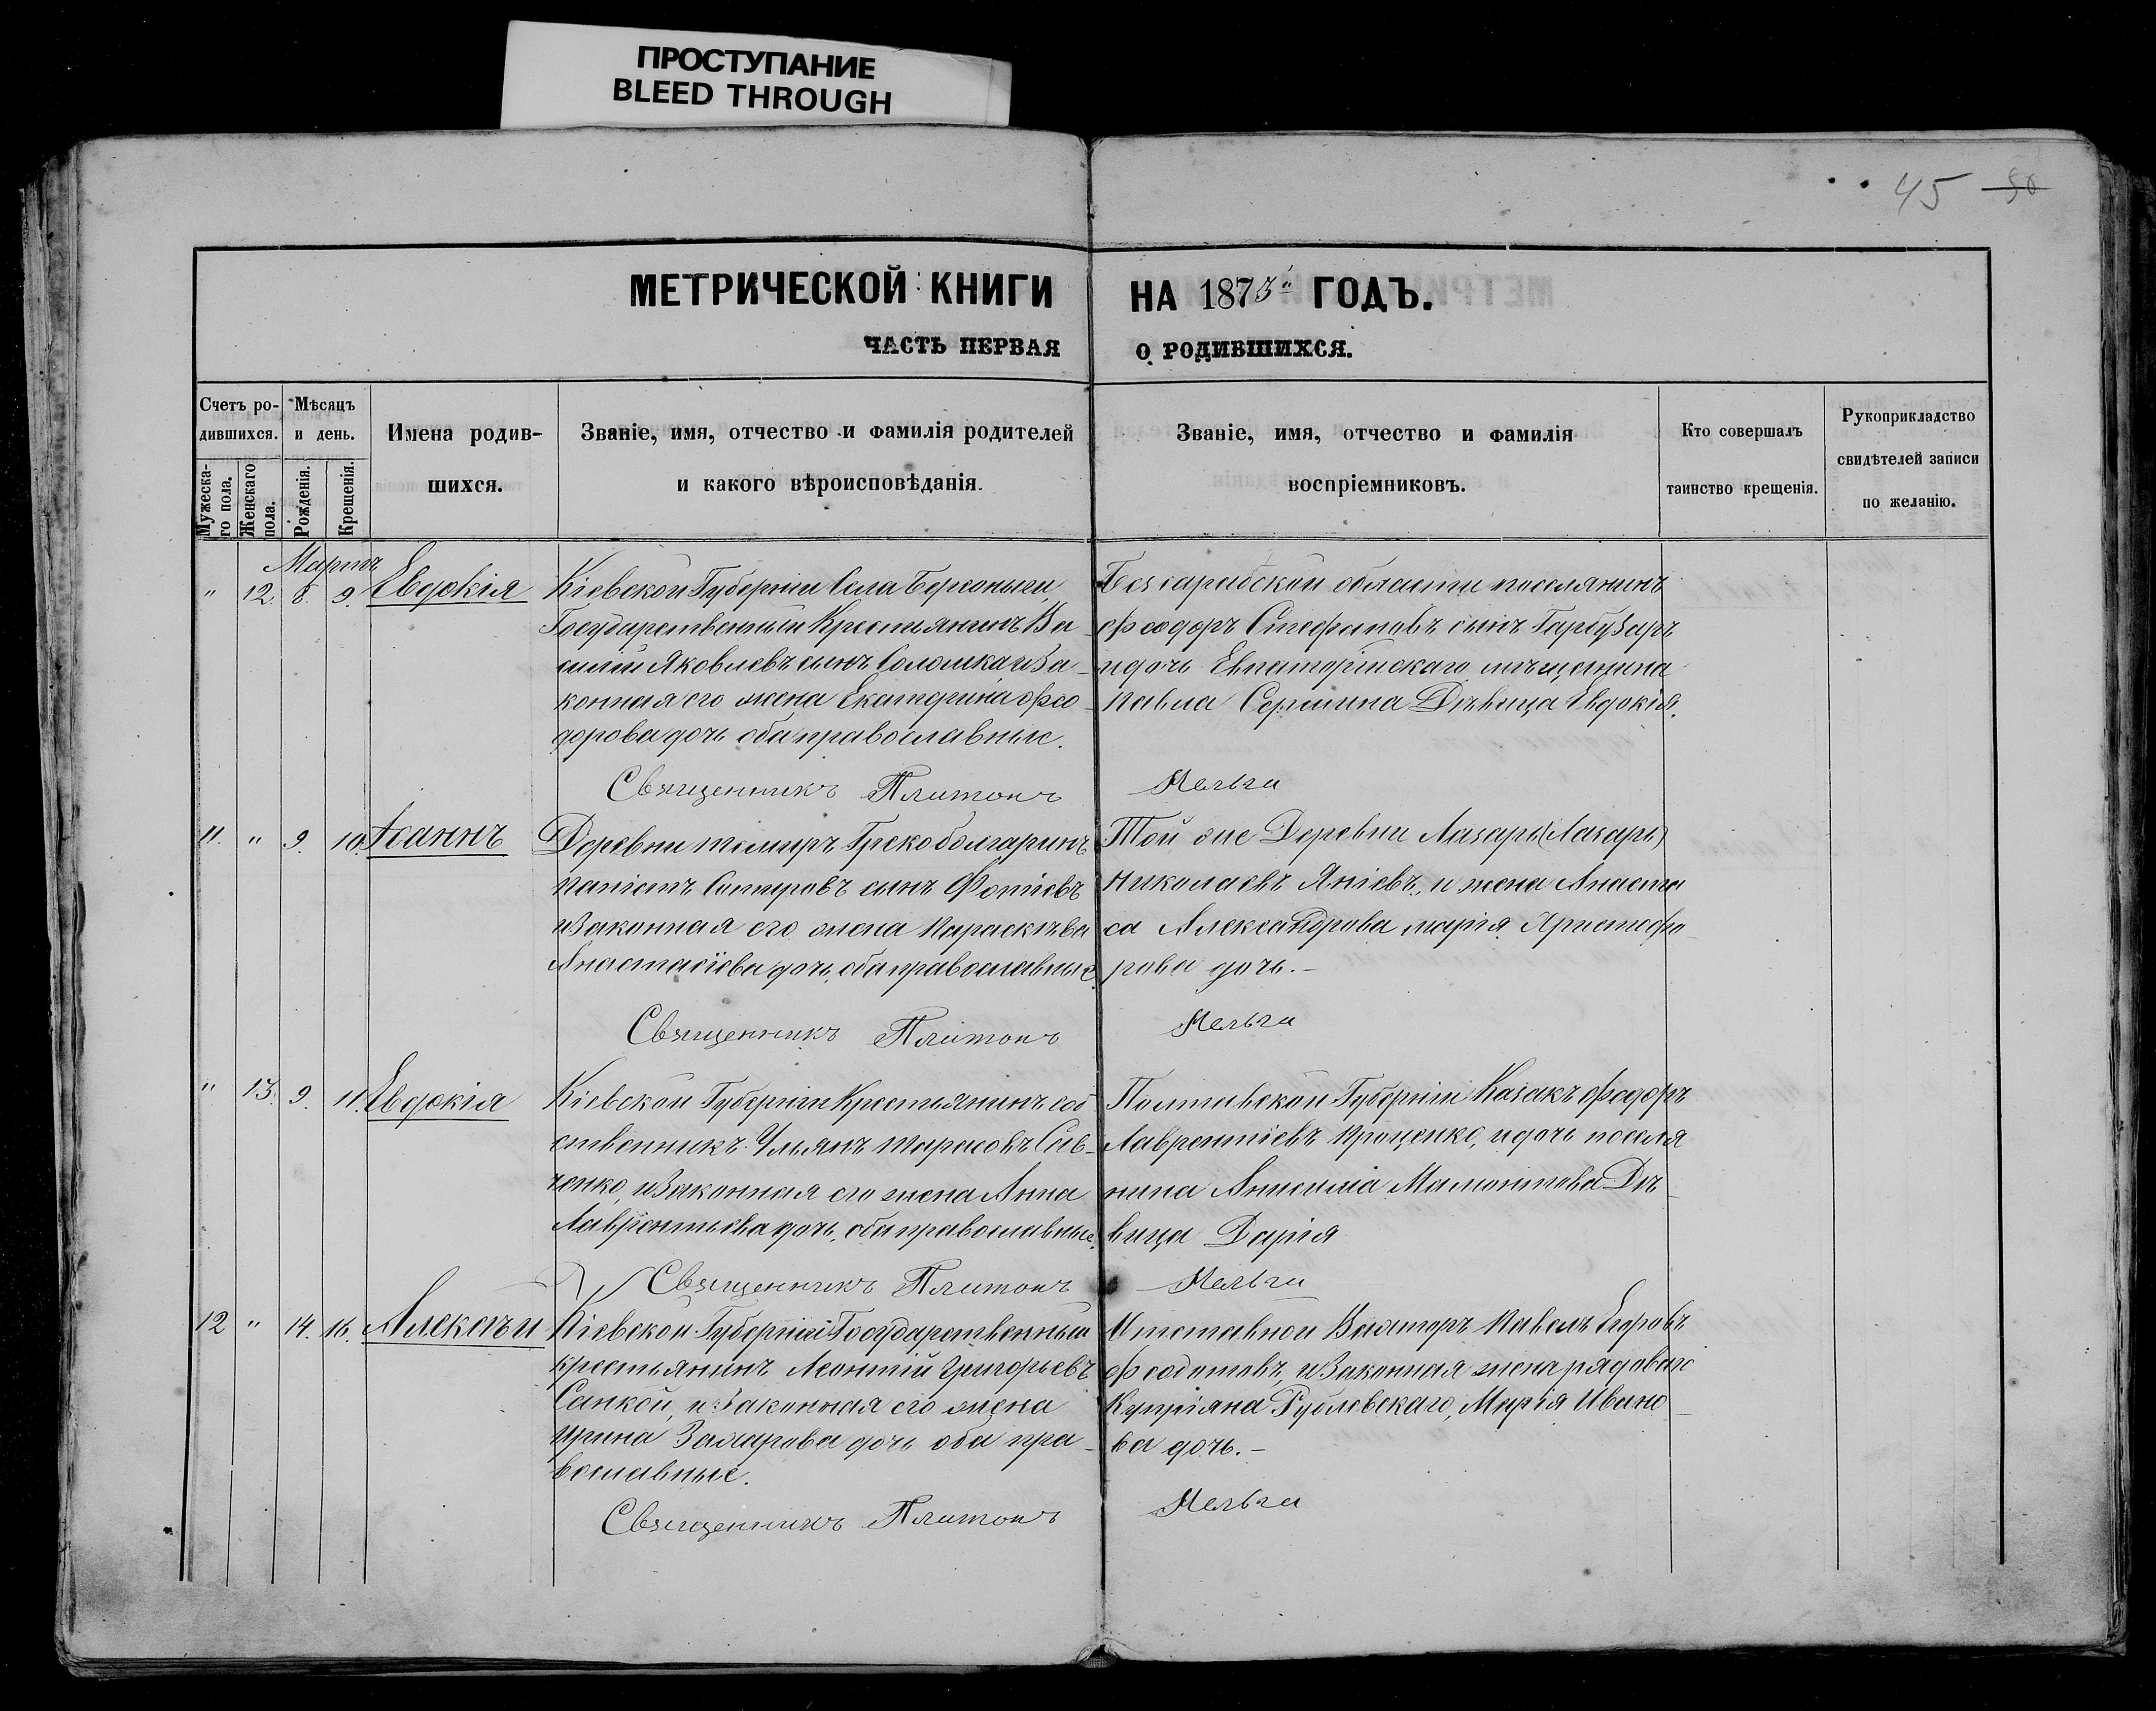 ПРОСТУПАНИЕ
BLEED THROUGH
45 90
МЕТРИЧЕСКОЙ КНИГИ НА 1875 ГОДЪ.
ЧАСТЬ ПЕРВАЯ О РОДИВШИХСЯ.
Счетъ ро-
дившихся.
Мужеска-
го пола.
Женскаго
пола.
Мѣсяцъ
и день.
Рожденія.
Крещенія.
Имена родив-
шихся.
Званіе, имя, отчество и фамилія родителей
и какого вѣроисповѣданія.
Званіе, имя, отчество и фамилія
воспріемниковъ.
Кто совершалъ
таинство крещенія.
Рукоприкладство
свидѣтелей записи
по желанію.
Мартъ
" 12. 8. 9. Евдокія
Кіевской Губерніи Села
Государственный Крестьянинъ Ва-
силій Яковлевъ сынъ и За-
конная его жена Екатерина Фео-
дорова дочь оба православные.
Священникъ Платонъ
Бессарабской области поселянинъ
Феодоръ Стефановъ сынъ Гарбузаръ
и дочь Евпаторійскаго мѣщанина
Павла Дѣвица Евдокія.
11. " 9. 10. Іоаннъ
Деревни Темиръ Грекоболгаринъ
сынъ Фотіевъ
и Законная его жена Параскѣва
Анастасіева дочь, оба православные.
Священникъ Платонъ
Той же Деревни Лазарь (Лазарь)
Николаевъ Яніевъ, и жена Анаста
са Александрова Марія Христофо-
рова дочь.-
" 13. 9. 11. Евдокія
Кіевской Губерніи Крестьянинъ соб
ственникъ Ульянъ Тарасовъ Сав-
ченко, и Законная его жена Анна
Лаврентьева дочь, оба православные.
Священникъ Платонъ
Полтавской Губерніи Казакъ Феодоръ
Лаврентіевъ Проценко, и дочь поселя
нина Мамонтова Дѣ-
вица Дарія
12 " 14. 16. Алексѣй
Кіевской Губерніи Государственный
крестьянинъ Леонтій Григорьевъ
и Законная его жена
Ирина Захарова дочь оба пра-
вославные.
Священникъ Платонъ
Отставной Павелъ Егоровъ
Феодотовъ, и Законная жена рядоваго
Купріяна Рублевскаго, Марія Ивано-
ва дочь.-